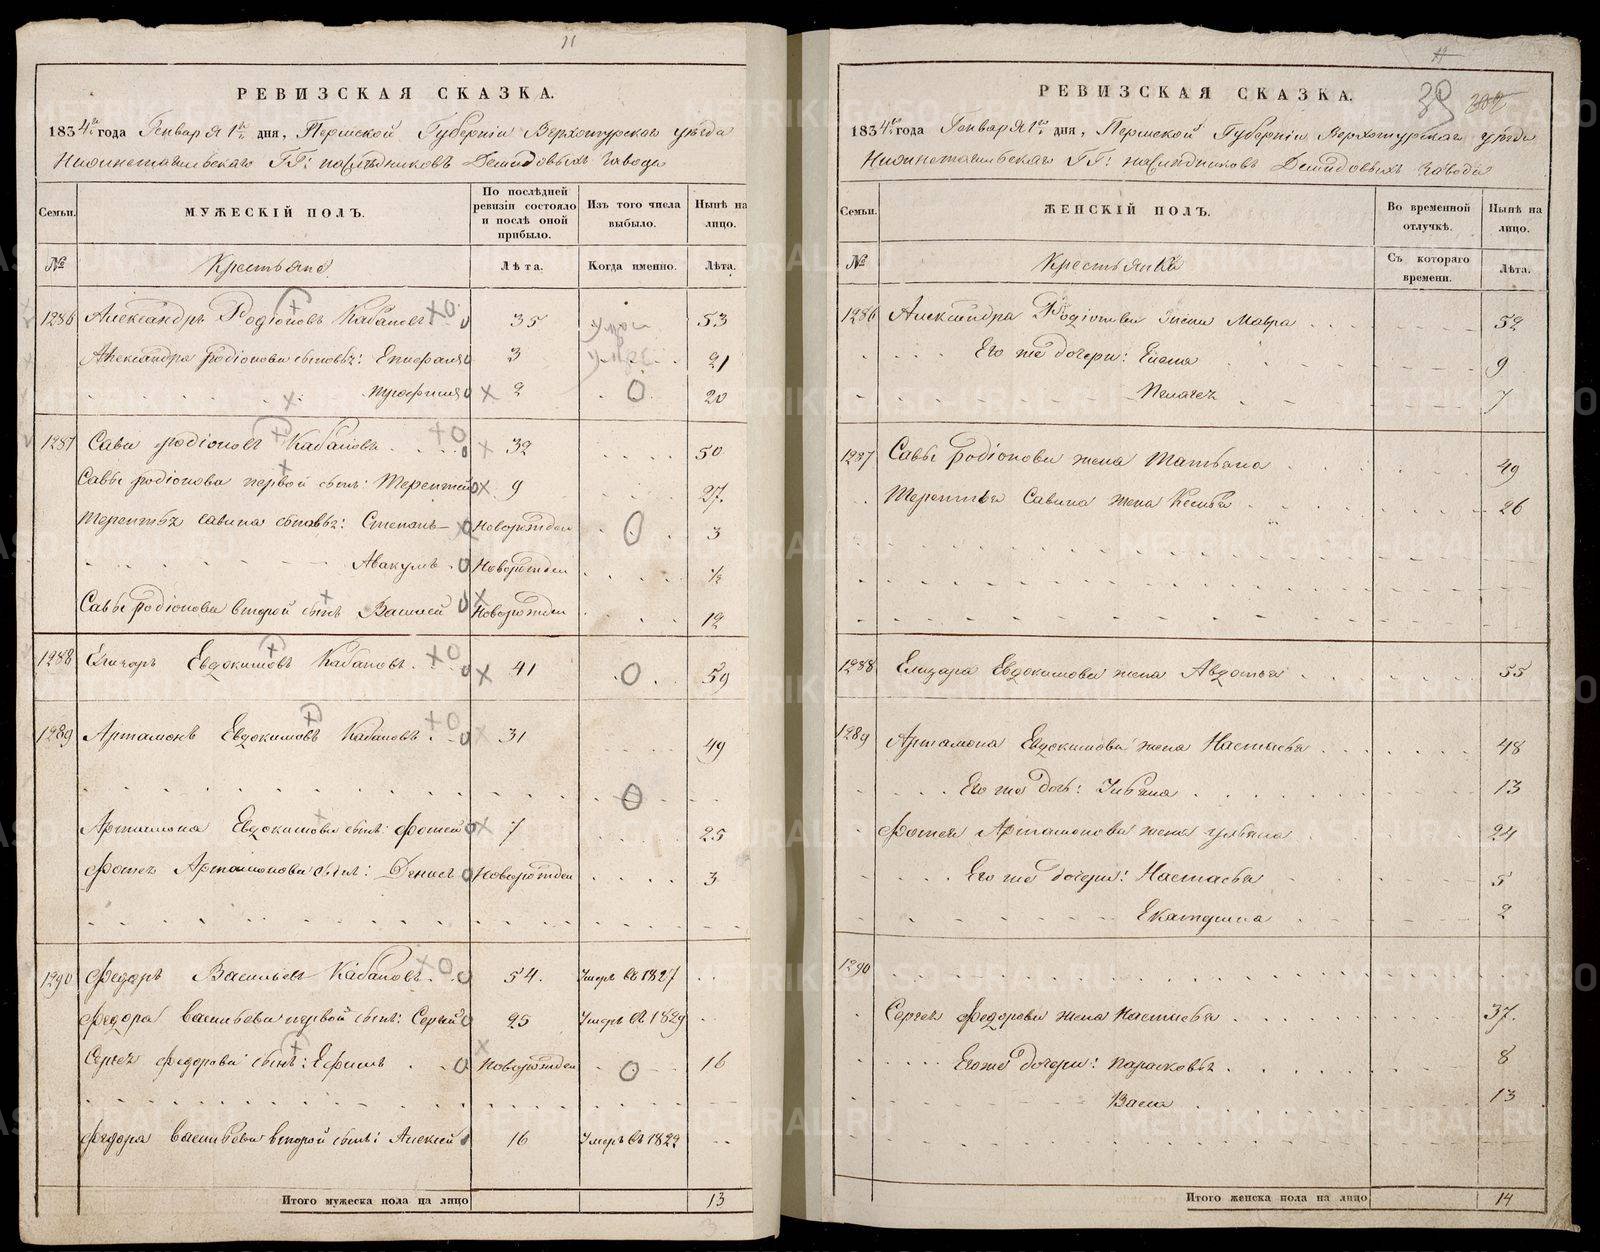 11
РЕВИЗСКАЯ СКАЗКА.
1834го года Генваря 1го дня, Пермской Губерніи Верхотурскаго уѣзда
Нижнетагильскаго ГГ: наслѣдниковъ Демидовыхъ завода
Семьи. МУЖЕСКІЙ ПОЛЪ. По послѣдней ревизіи состояло и послѣ оной прибыло. Изъ того числа выбыло. Нынѣ на лицо.
№ Крестьяне. Лѣта. Когда именно. Лѣта.
1286 Александръ Родіоновъ Кабановъ 35 53
Александра Родіонова сыновья: Епифаній 3 21
Трофимъ 2 20
1287 Сава Родіоновъ Кабановъ 32 50
Савы Родіонова первой сынъ: Терентей 9 27
Терентья Савина сыновья: Степанъ Новорожден 3
Авакумъ Новорожден ½
Савы Родіонова второй сынъ Василей Новорожден 12
1288 Елизаръ Евдокимовъ Кабановъ 41 59
1289 Артамонъ Евдокимовъ Кабановъ 31 49
Артамона Евдокимова сынъ: Фотей 7 25
Фотея Артамонова сынъ: Денисъ Новорожден 3
1290 Федоръ Васильевъ Кабановъ 54 Умеръ въ 1827
Федора Васильева первой сынъ: Сергей 25 Умеръ въ 1829
Сергея Федорова сынъ: Ефимъ Новорожден 16
Федора Васильева второй сынъ: Алексей 16 Умеръ въ 1829
Итого мужеска пола на лицо 13
3
11
39
РЕВИЗСКАЯ СКАЗКА.
1834го года Генваря 1го дня, Пермской Губерніи Верхотурскаго уѣзда
Нижнетагильскаго ГГ: наслѣдниковъ Демидовыхъ завода
Семьи. ЖЕНСКІЙ ПОЛЪ. Во временной отлучкѣ. Нынѣ на лицо.
№ Крестьянки Съ котораго времени. Лѣта.
1286 Александра Родіонова жена Мавра 52
Его же дочери: 9
Пелагея 7
1287 Савы Родіонова жена Татьяна 49
Терентья Савина жена 26
1288 Елизара Евдокимова жена Авдотья 55
1289 Артамона Евдокимова жена Настасья 48
Его же дочь: 13
Фотея Артамонова жена Ульяна 24
Его же дочери: Настасья 5
Екатерина 2
1290
Сергея Федорова жена Настасья 37
Его же дочери: Парасковья 8
Васа 13
Итого женска пола на лицо 14
METRIKI.GASO-URAL.RU